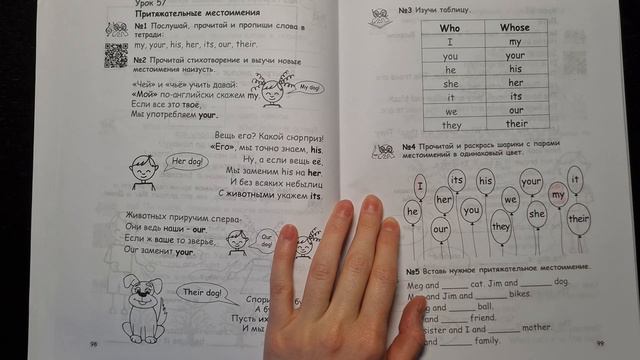 Урок 57
Притяжательные местоимения
№1 Послушай, прочитай и пропиши слова в
тетради:
my, your, his, her, its, our, their.
№2 Прочитай стихотворение и выучи новые
местоимения наизусть.
«Чей» и «чьё» учить давай:
«Мой» по-английски скажем my.
Если все это твоё,
Мы употребляем your.
My dog!
Вещь его? Какой сюрприз!
«Его», мы точно знаем, his.
Ну, а если вещь её,
Мы заменим his на her.
И без всяких небылиц
С животными укажем its.
Her dog!
Животных приручим сперва-
Они ведь наши - our.
Если ж ваше то зверьё,
Our заменит your.
Our
dog!
Their dog!
Пусть
И мы
98
№3 Изучи таблицу.
Who Whose
I my
you your
he his
she her
it its
we our
they their
№4 Прочитай и раскрась шарики с парами
местоимений в одинаковый цвет.
I its his your it
he her you we my
our they she their
№5 Вставь нужное притяжательное местоимение.
Meg and ______ cat. Jim and ______ dog.
and Jim and ______ bikes.
and ______ ball.
and ______ friend.
sister and I and ______ mother.
and ______ family.
99